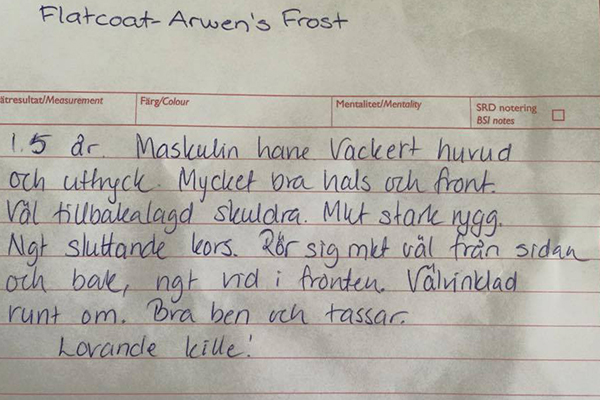 Flatcoat- Arwen's Frost
ätresultat/Measurement Färg/Colour Mentalitet/Mentality SRD notering
BSI notes
1.5 år. Maskulin hane Vackert huvud
och uttryck. Mycket bra hals och front.
Väl tillbakalagd skuldra. Mkt stark rygg.
Ngt sluttande kors. Rör sig mkt väl från sidan
och bak, ngt vid i fronten. Välvinklad
runt om. Bra ben och tassar.
Lovande kille!